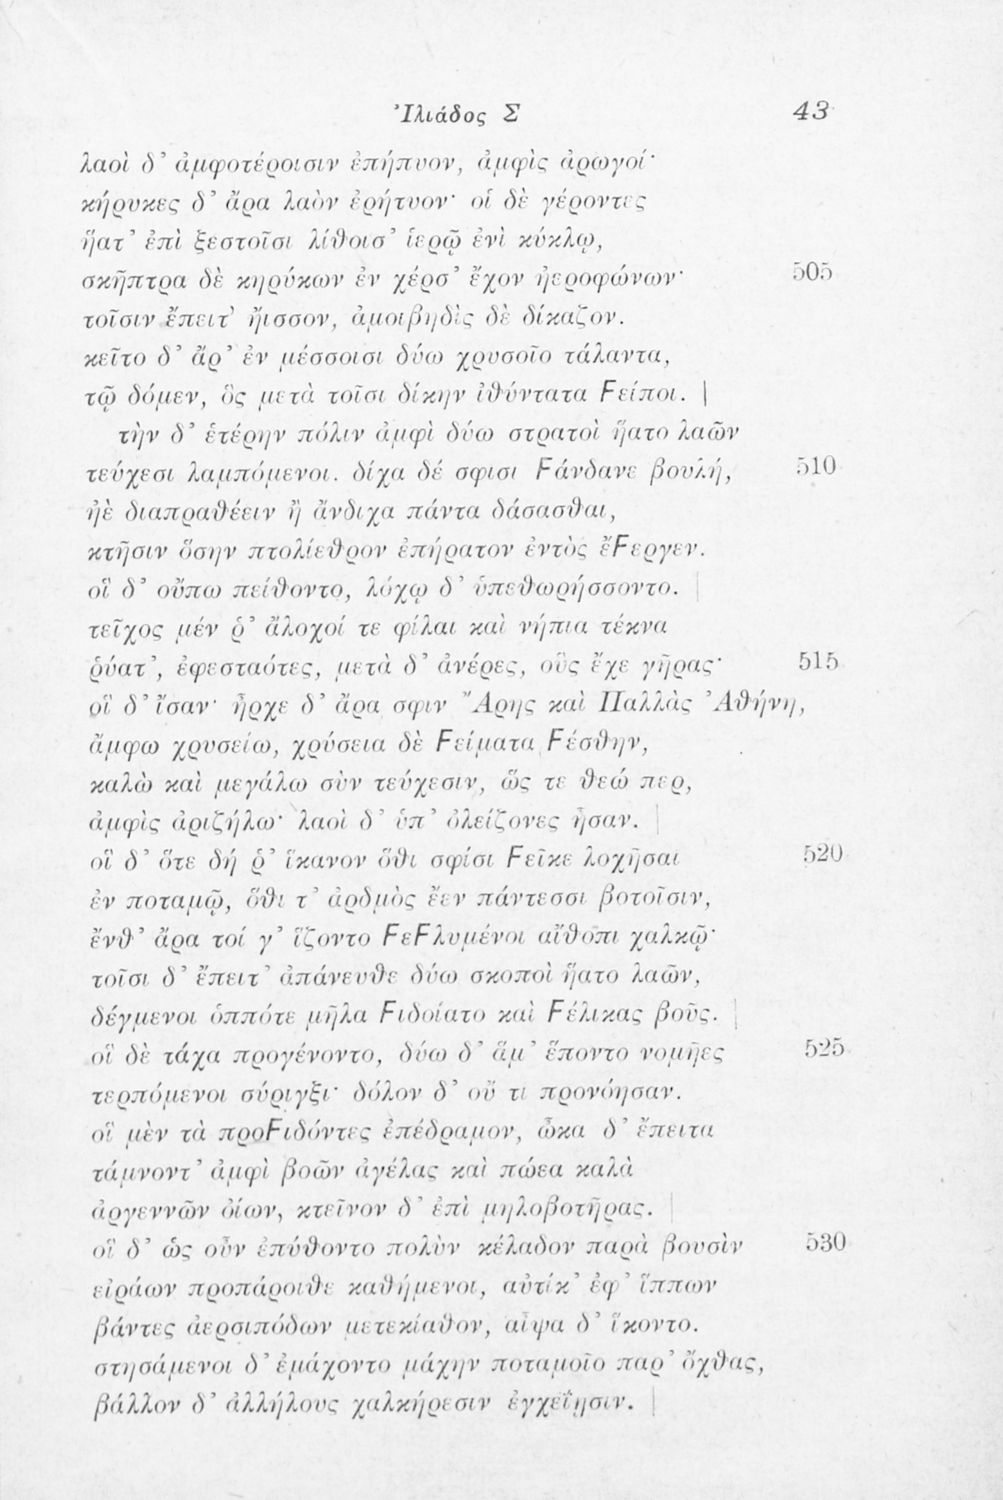 Ἰλιάδος Σ 43
λαοὶ δ’ ἀμφοτέροισιν ἐπήπυον, ἀμφὶς ἀρωγοί·
κήρυκες δ’ ἄρα λαὸν ἐρήτυον· οἱ δὲ γέροντες
ἥατ’ ἐπὶ ξεστοῖσι λίθοισ’ ἱερῷ ἐνὶ κύκλῳ,
σκῆπτρα δὲ κηρύκων ἐν χέρσ’ ἔχον ἠεροφώνων· 505
τοῖσιν ἔπειτ’ ἤισσον, ἀμοιβηδὶς δὲ δίκαζον.
κεῖτο δ’ ἄρ’ ἐν μέσσοισι δύω χρυσοῖο τάλαντα,
τῷ δόμεν, ὃς μετὰ τοῖσι δίκην ἰθύντατα Ϝείποι. |
τὴν δ’ ἑτέρην πόλιν ἀμφὶ δύω στρατοὶ ἥατο λαῶν
τεύχεσι λαμπόμενοι. δίχα δέ σφισι Ϝάνδανε βουλή, 510
ἠὲ διαπραθέειν ἢ ἄνδιχα πάντα δάσασθαι,
κτῆσιν ὅσην πτολίεθρον ἐπήρατον ἐντὸς ἔϜεργεν.
οἳ δ’ οὔπω πείθοντο, λόχῳ δ’ ὑπεθωρήσσοντο. |
τεῖχος μέν ῥ’ ἄλοχοί τε φίλαι καὶ νήπια τέκνα
ῥύατ’, ἐφεσταότες, μετὰ δ’ ἀνέρες, οὓς ἔχε γῆρας· 515
οἳ δ’ ἴσαν· ἦρχε δ’ ἄρα σφιν Ἄρης καὶ Παλλὰς Ἀθήνη,
ἄμφω χρυσείω, χρύσεια δὲ Ϝείματα Ϝέσθην,
καλὼ καὶ μεγάλω σὺν τεύχεσιν, ὥς τε θεώ περ,
ἀμφὶς ἀριζήλω· λαοὶ δ’ ὑπ’ ὀλείζονες ἦσαν. |
οἳ δ’ ὅτε δή ῥ’ ἵκανον ὅθι σφίσι Ϝεῖκε λοχῆσαι 520
ἐν ποταμῷ, ὅθι τ’ ἀρδμὸς ἔεν πάντεσσι βοτοῖσιν,
ἔνθ’ ἄρα τοί γ’ ἵζοντο ϜεϜλυμένοι αἴθοπι χαλκῷ·
τοῖσι δ’ ἔπειτ’ ἀπάνευθε δύω σκοποὶ ἥατο λαῶν,
δέγμενοι ὁππότε μῆλα Ϝιδοίατο καὶ Ϝέλικας βοῦς. |
οἳ δὲ τάχα προγένοντο, δύω δ’ ἅμ’ ἕποντο νομῆες 525
τερπόμενοι σύριγξι· δόλον δ’ οὔ τι προνόησαν.
οἳ μὲν τὰ προϜιδόντες ἐπέδραμον, ὦκα δ’ ἔπειτα
τάμνοντ’ ἀμφὶ βοῶν ἀγέλας καὶ πώεα καλὰ
ἀργεννῶν ὀίων, κτεῖνον δ’ ἐπὶ μηλοβοτῆρας. |
οἳ δ’ ὡς οὖν ἐπύθοντο πολὺν κέλαδον παρὰ βουσὶν 530
εἰράων προπάροιθε καθήμενοι, αὐτίκ’ ἐφ’ ἵππων
βάντες ἀερσιπόδων μετεκίαθον, αἶψα δ’ ἵκοντο.
στησάμενοι δ’ ἐμάχοντο μάχην ποταμοῖο παρ’ ὄχθας,
βάλλον δ’ ἀλλήλους χαλκήρεσιν ἐγχεΐῃσιν. |